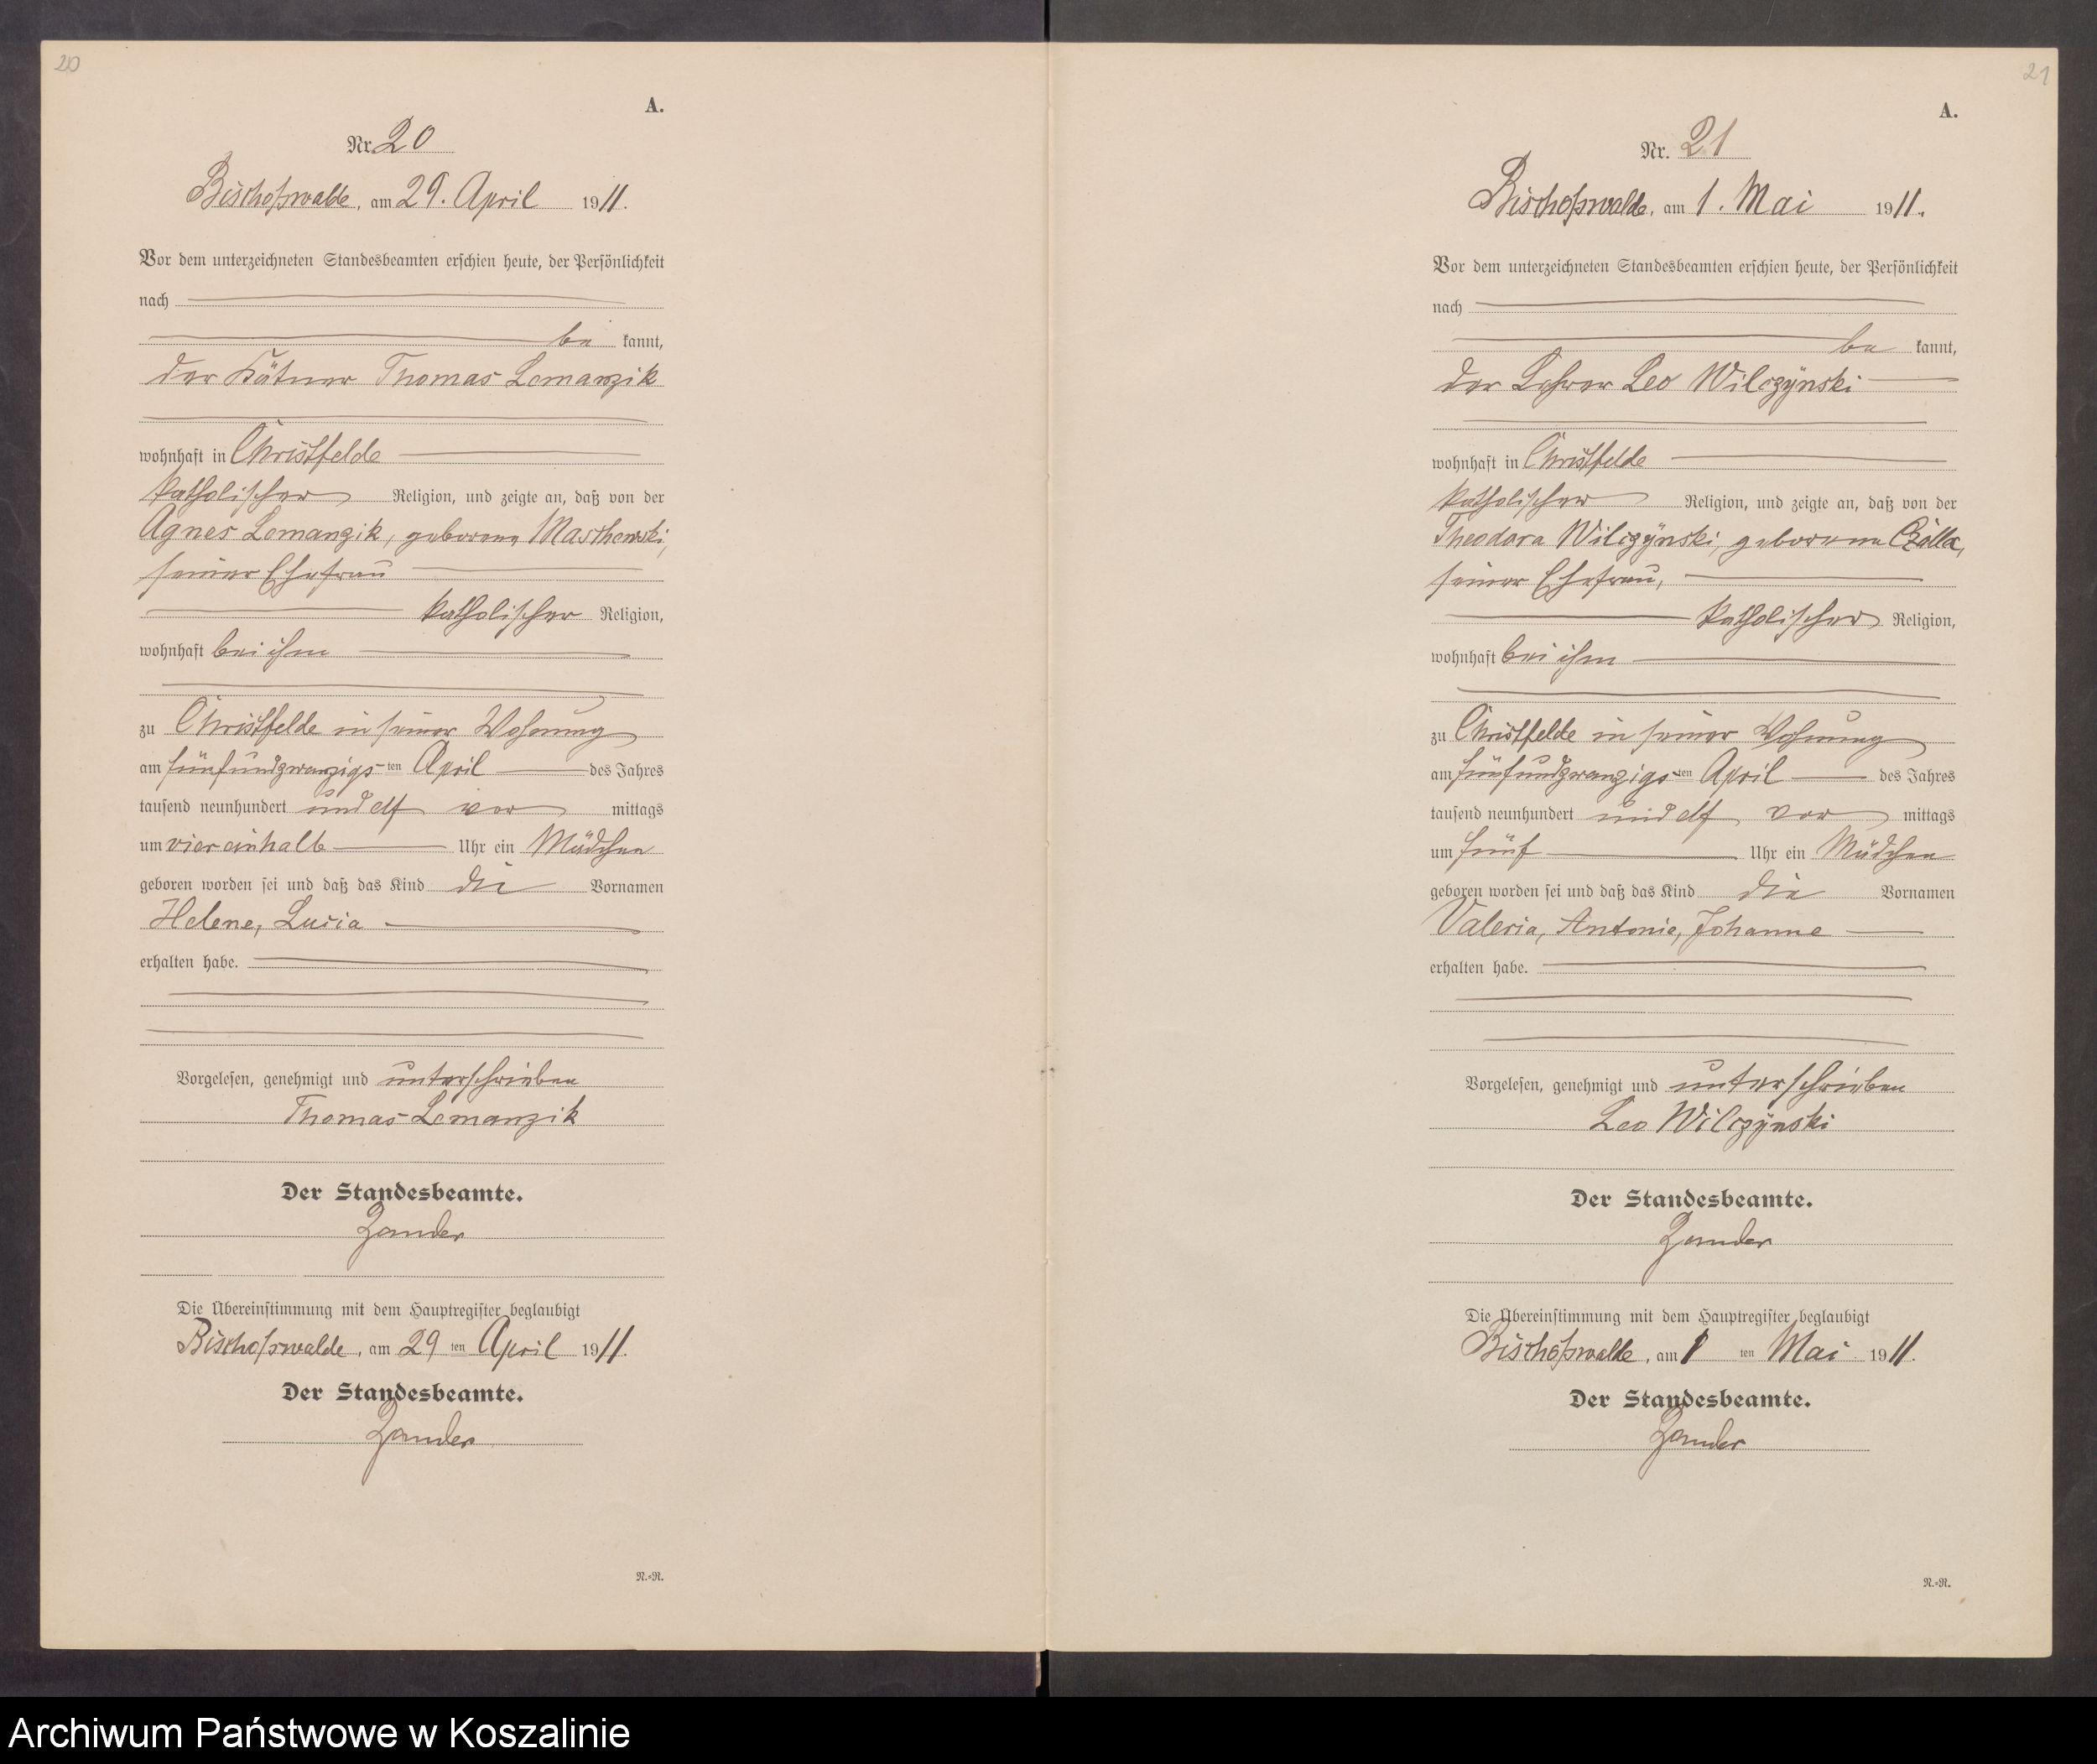 20
A.
Nr. 20
Bischofswalde, am 29. April 1911.
Vor dem unterzeichneten Standesbeamten erschien heute, der Persönlichkeit
nach
be kannt,
der Kätner Thomas Lomanzik
wohnhaft in Christfelde
katholischer Religion, und zeigte an, daß von der
Agnes Lomanzik, geborene Masthowski,
seiner Ehefrau
katholischer Religion,
wohnhaft bei ihm
zu Christfelde in seiner Wohnung
am fünfundzwanzigs-ten April des Jahres
tausend neunhundert und elf vor mittags
um vier einhalb Uhr ein Mädchen
geboren worden sei und daß das Kind die Vornamen
Helene, Lucia
erhalten habe.
Vorgelesen, genehmigt und unterschrieben
Thomas Lomanzik
Der Standesbeamte.
Zander
Die Übereinstimmung mit dem Hauptregister beglaubigt
Bischofswalde, am 29 ten April 1911.
Der Standesbeamte.
Zander
N.=N.
21
A.
Nr. 21
Bischofswalde, am 1. Mai 1911.
Vor dem unterzeichneten Standesbeamten erschien heute, der Persönlichkeit
nach
be kannt,
der Lehrer Leo Wilczynski
wohnhaft in Christfelde
katholischer Religion, und zeigte an, daß von der
Theodora Wilczynski, geborene
seiner Ehefrau,
katholischer Religion,
wohnhaft bei ihm
zu Christfelde in seiner Wohnung
am fünfundzwanzigs-ten April des Jahres
tausend neunhundert und elf vor mittags
um fünf Uhr ein Mädchen
geboren worden sei und daß das Kind die Vornamen
Valeria, Antonie, Johanne
erhalten habe.
Vorgelesen, genehmigt und unterschrieben
Leo Wilczynski
Der Standesbeamte.
Zander
Die Übereinstimmung mit dem Hauptregister beglaubigt
Bischofswalde, am 1 ten Mai 1911.
Der Standesbeamte.
Zander
N.=N.
Archiwum Państwowe w Koszalinie